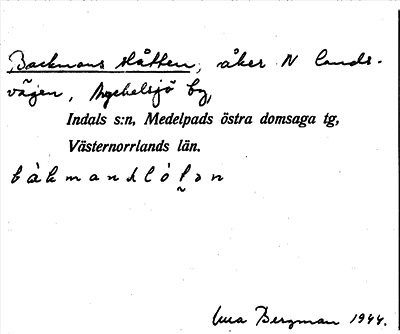 Backmans slåtten, åker N lands-
vägen, Bychelsjö by,
Indals s:n, Medelpads östra domsaga tg,
Västernorrlands län.
Bergman 1944.